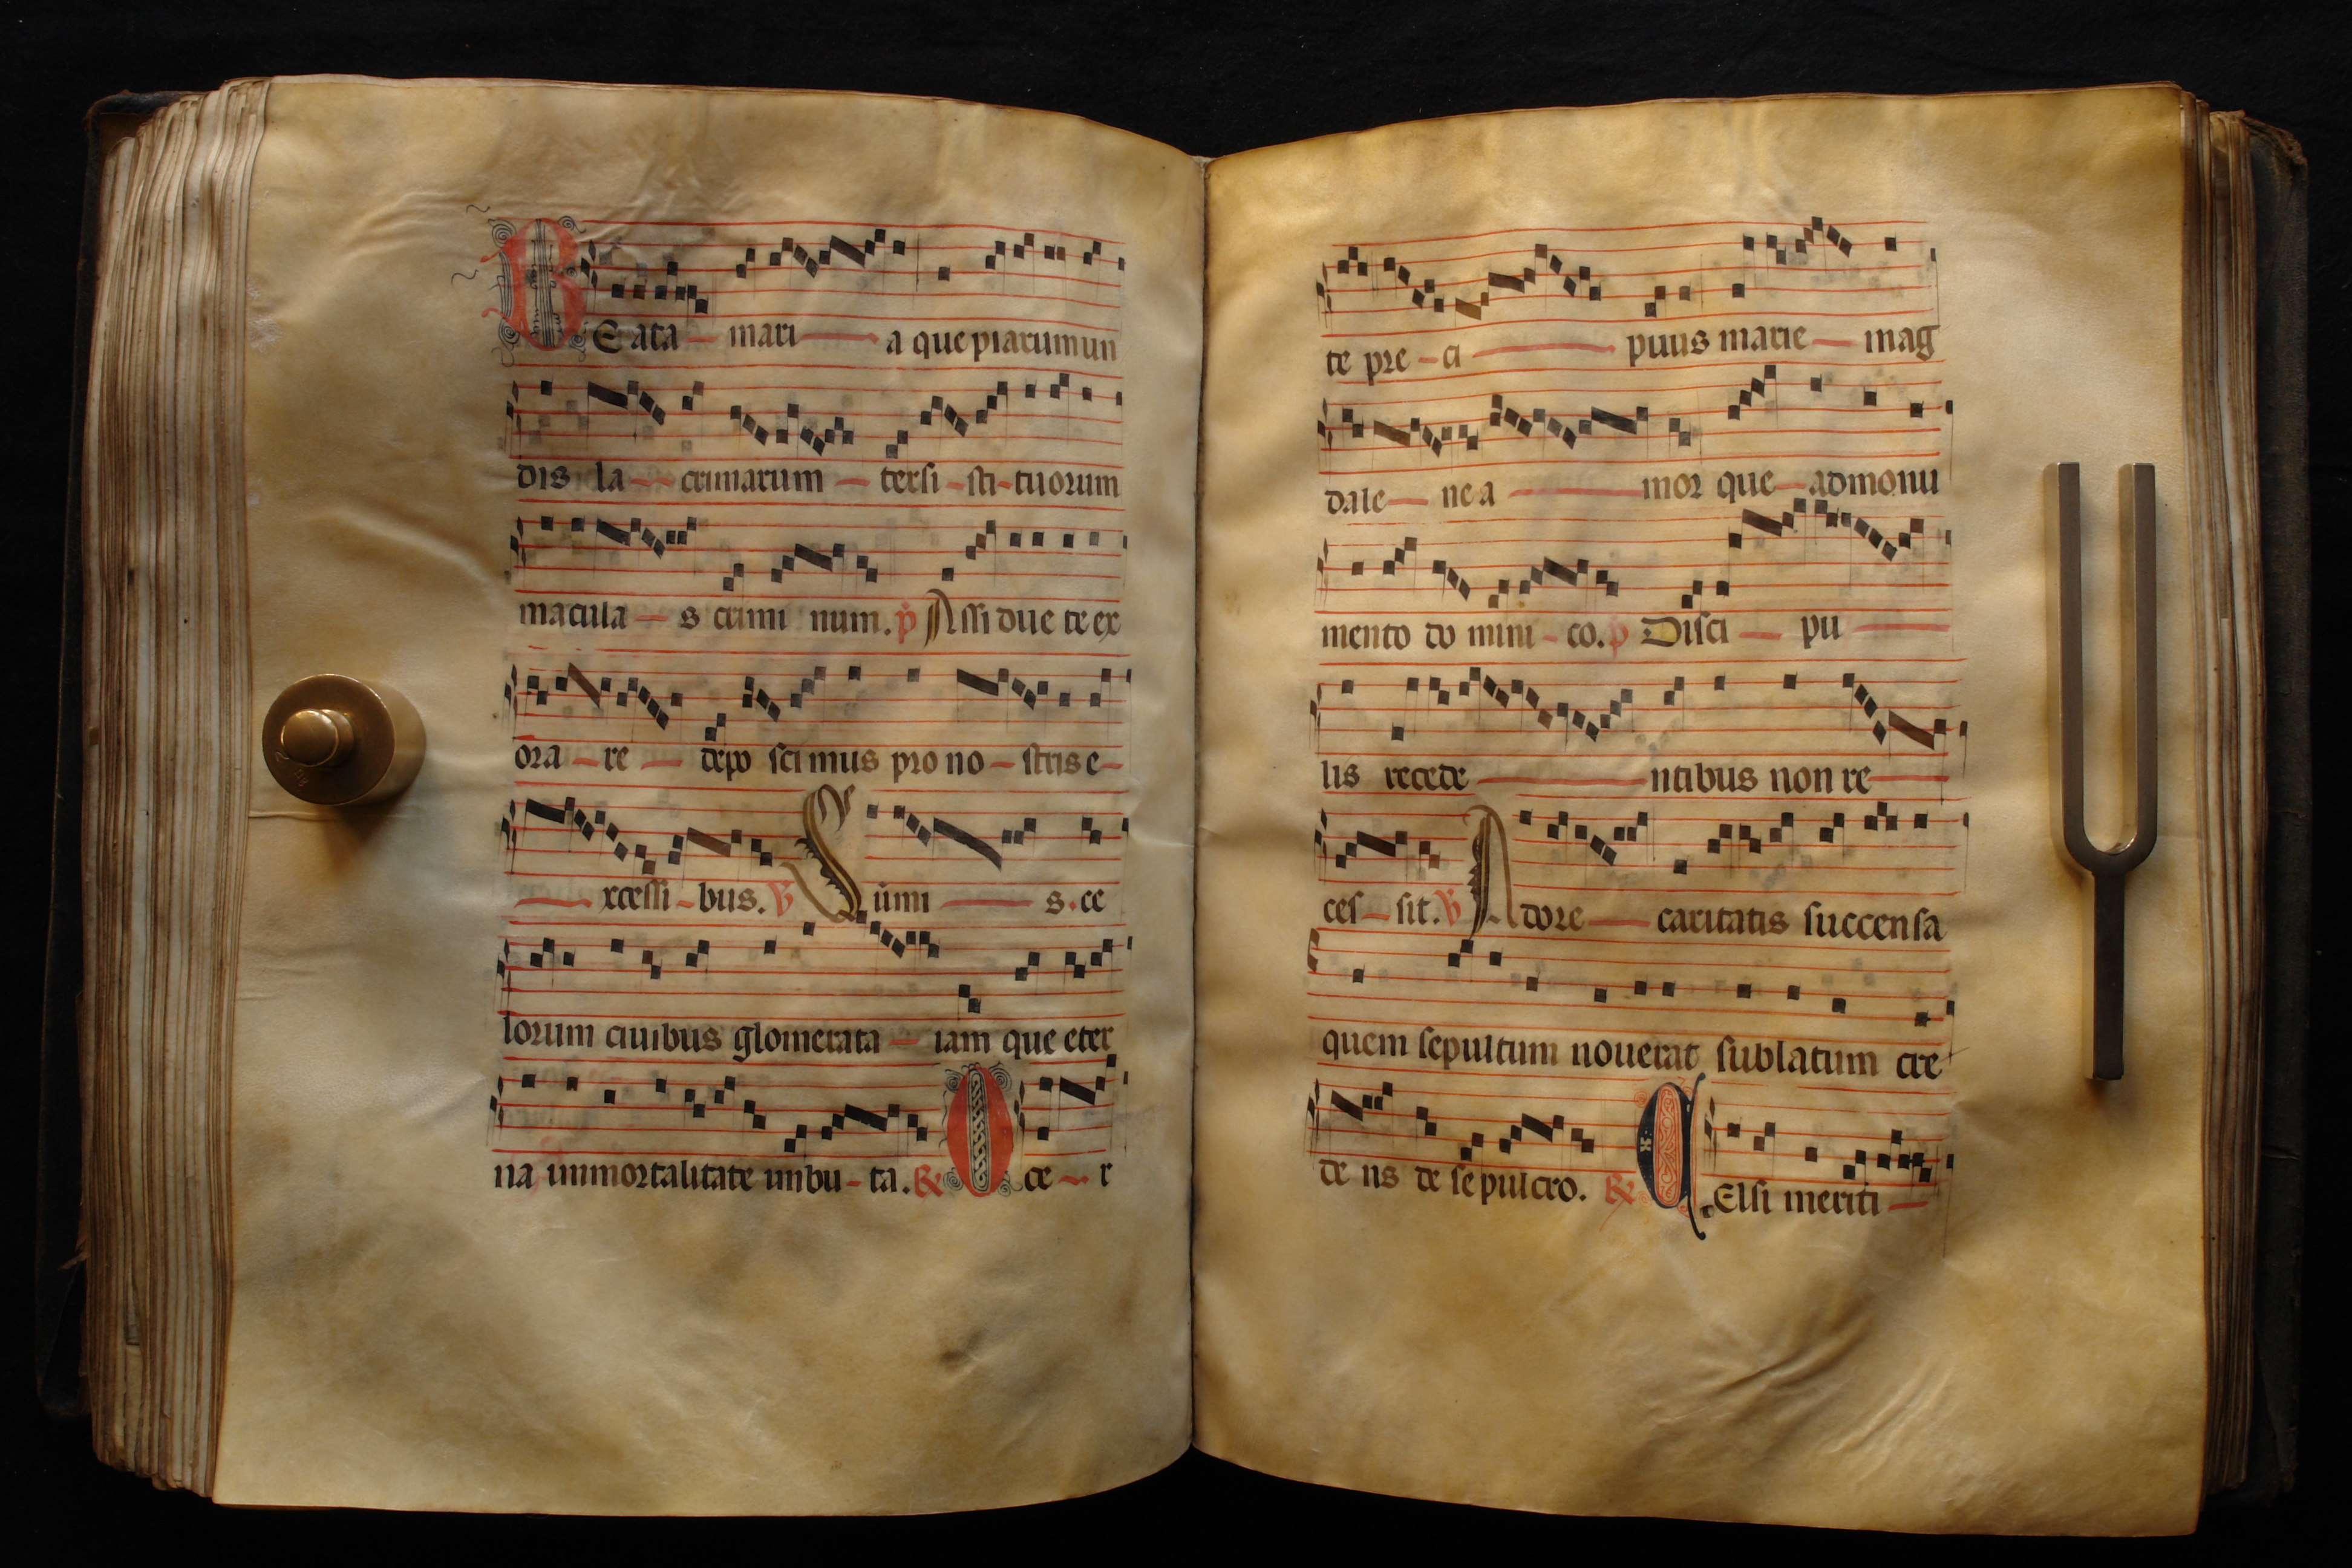 BEata mari a que piarum un
dis la crimarum tersi sti tuorum
macula s crimi num. p Assidue te ex
ora re depo scimus pro no stris e
xcessi bus. V Sumi s. ce
lorum ciuibus glomerata iam que eter
na immortalitate imbu ta. R O ce r
te pre ci puus marie mag
dale ne a mor que admonu
mento do mini co. p Disci pu
lis recede ntibus non re
ces sit. V Adore caritatis succensa
quem sepultum nouerat sublatum cre
de ns de sepulcro. R . Elsi meriti